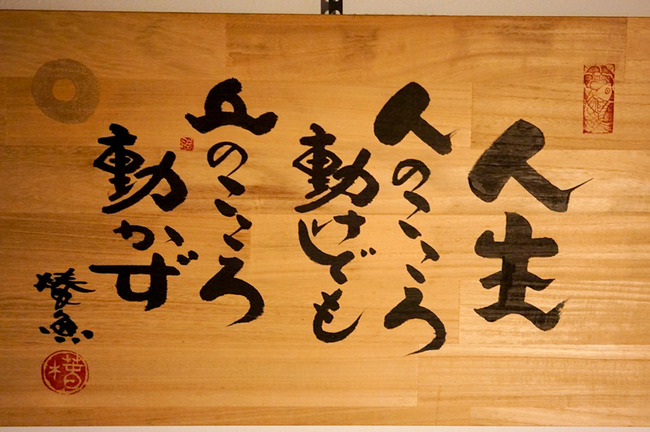 人生
人のこころ
動けども
のこころ
動かず